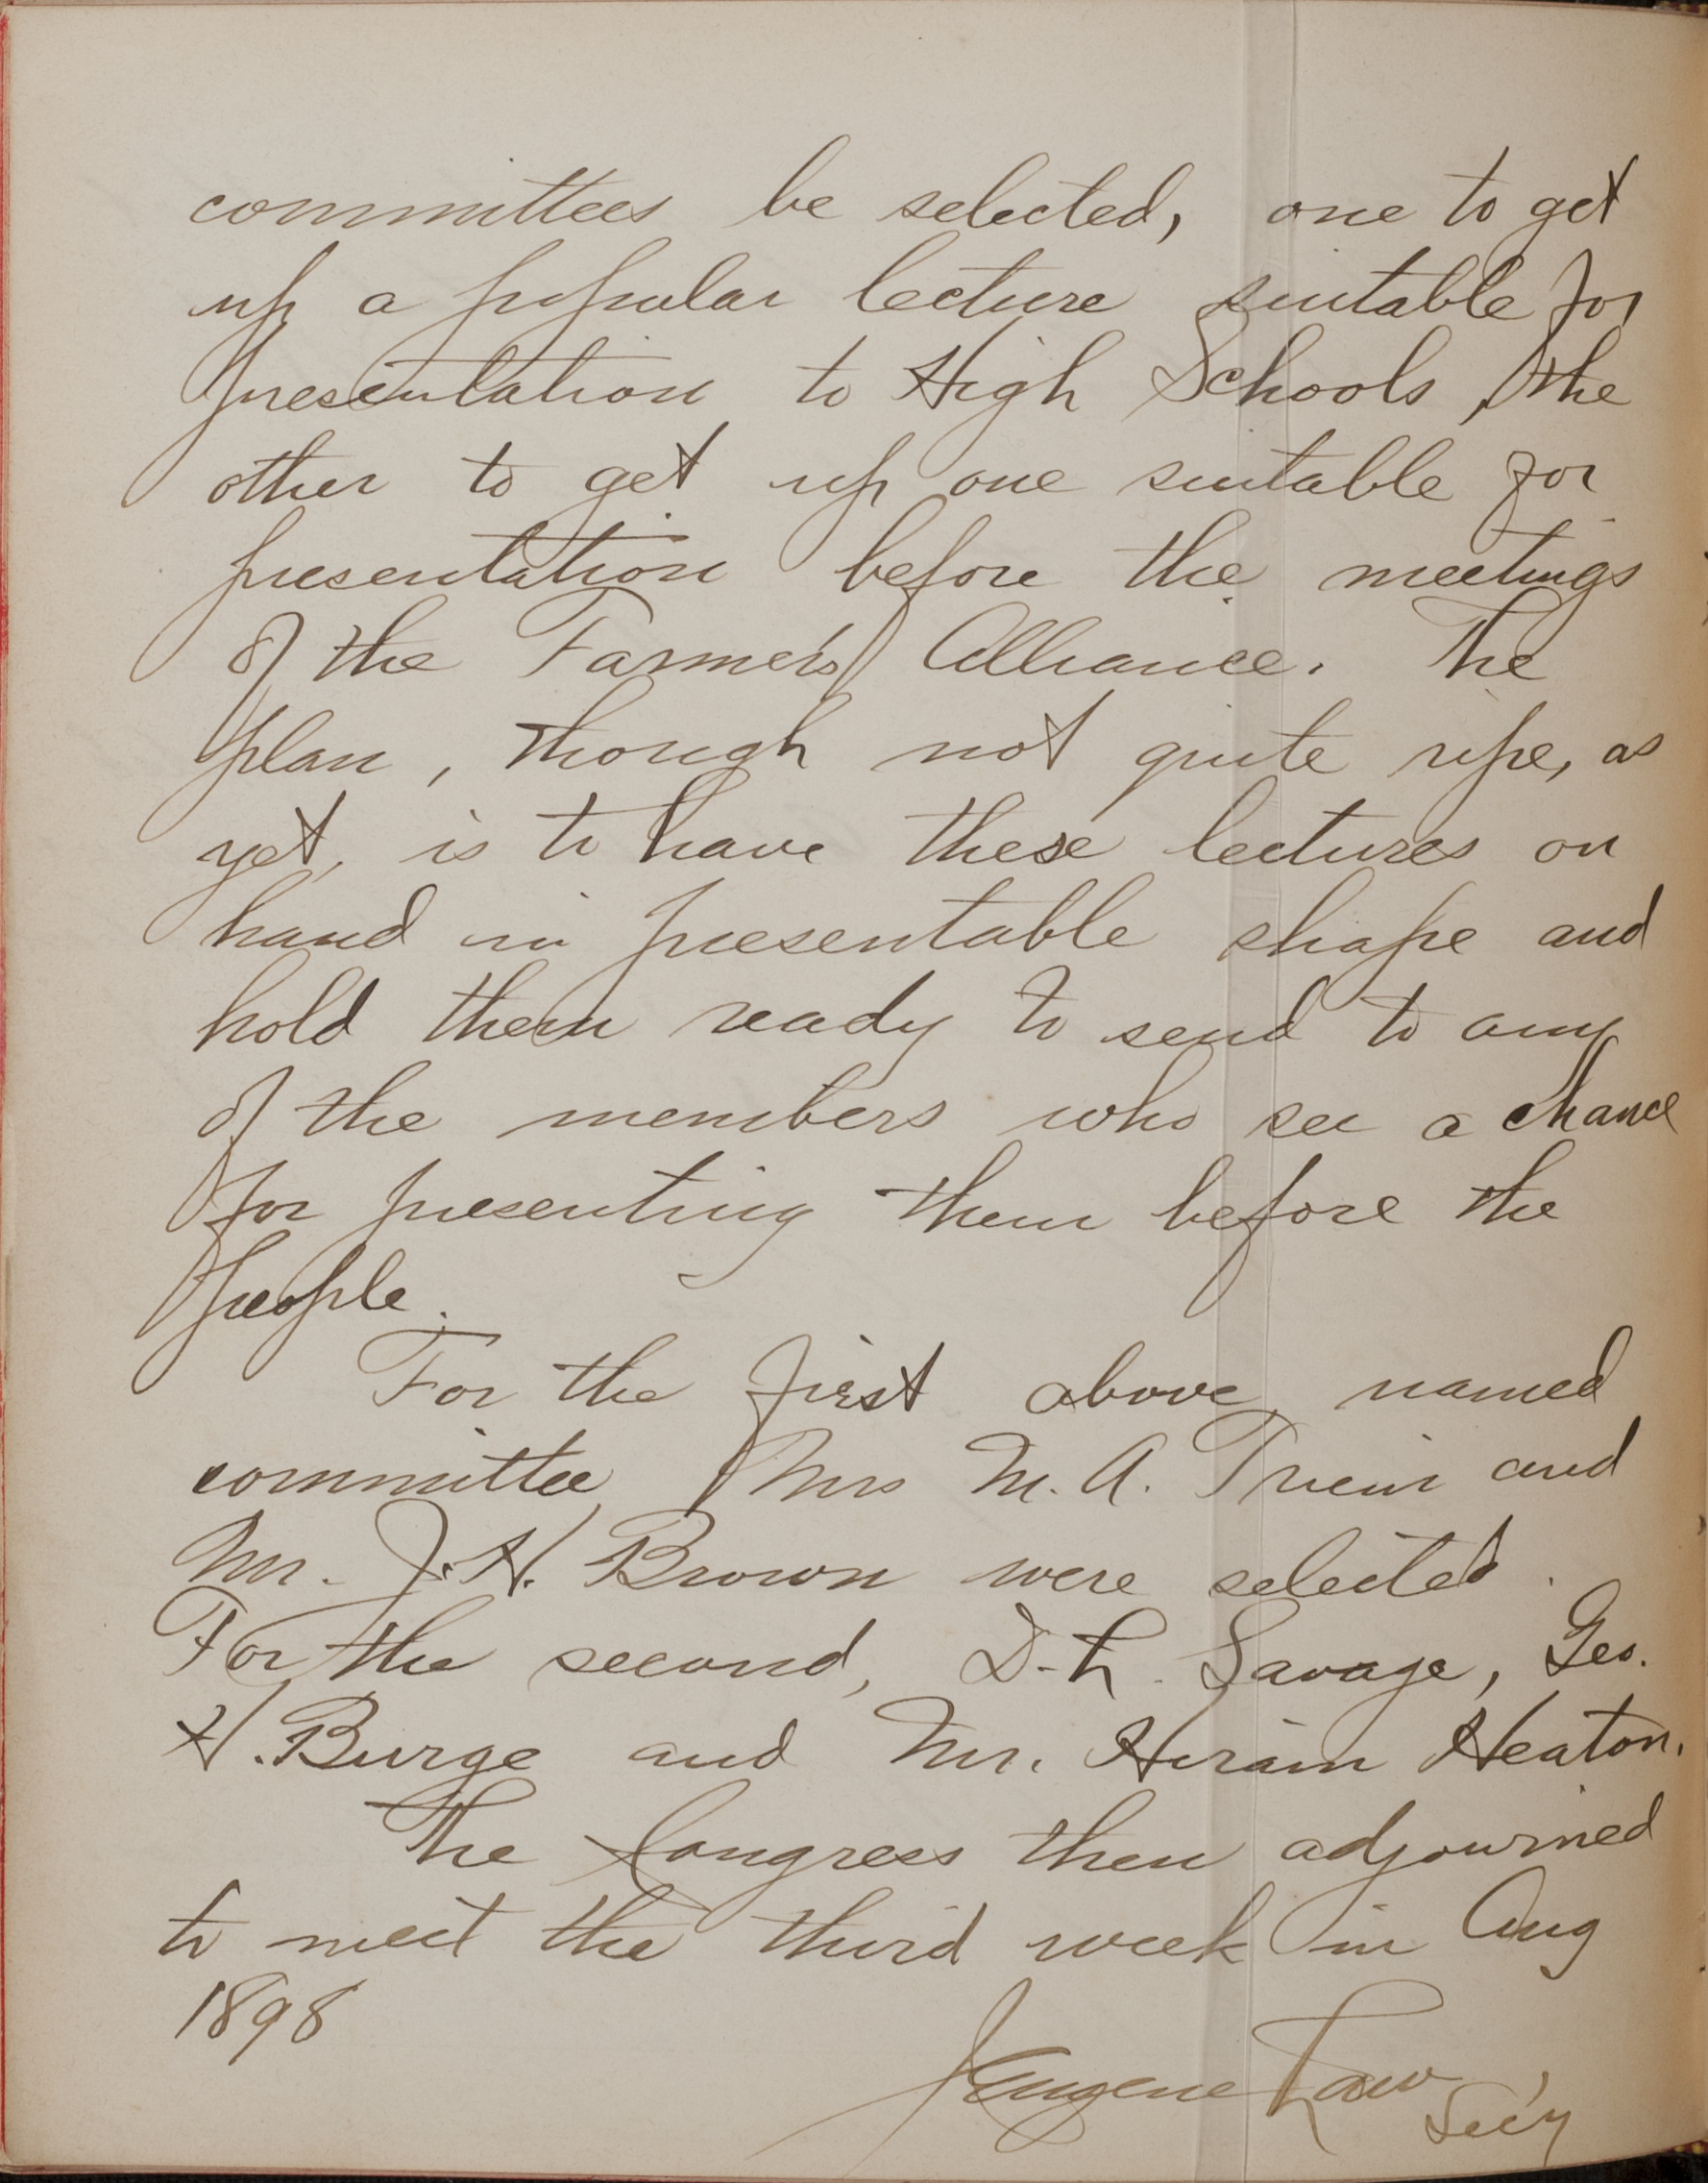 committees be selected, one to get
up a popular lecture suitable for
presentation to High Schools, the
other to get up one suitable for
presentation before the meetings
of the Farmers Alliance. The
plan, though not quite ripe, as
yet, is to have these lectures on
hand in presentable shape and
hold them ready to send to any
of the members who see a chance
for presenting them before the
people.
For the first above named
committee Mrs M. A. and
Mr. J. H. Brown were selected.
For the second, D. L. Savage, Geo.
H. Burge and Mr. Hiram Heaton.
The Congress then adjourned
to meet the third week in Aug
1898
J Eugene Law
Sec'y